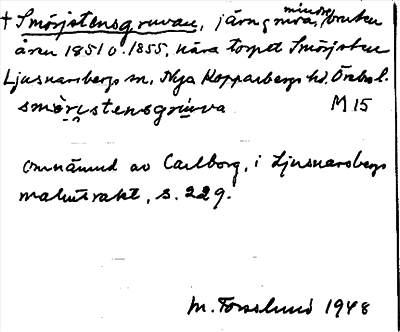 † Smörjstensgruvan, järngruva, mindre, bruten
åren 1851 o. 1855, nära torpet Smörjsten
Ljusnarsbergs sn, Nya Kopparbergs hd, Örebro l.
smörjstensgruva M 15
omnämnd av Carlborg, i Ljusnarsbergs
malmtrakt, s. 229.
M. Forslund 1948